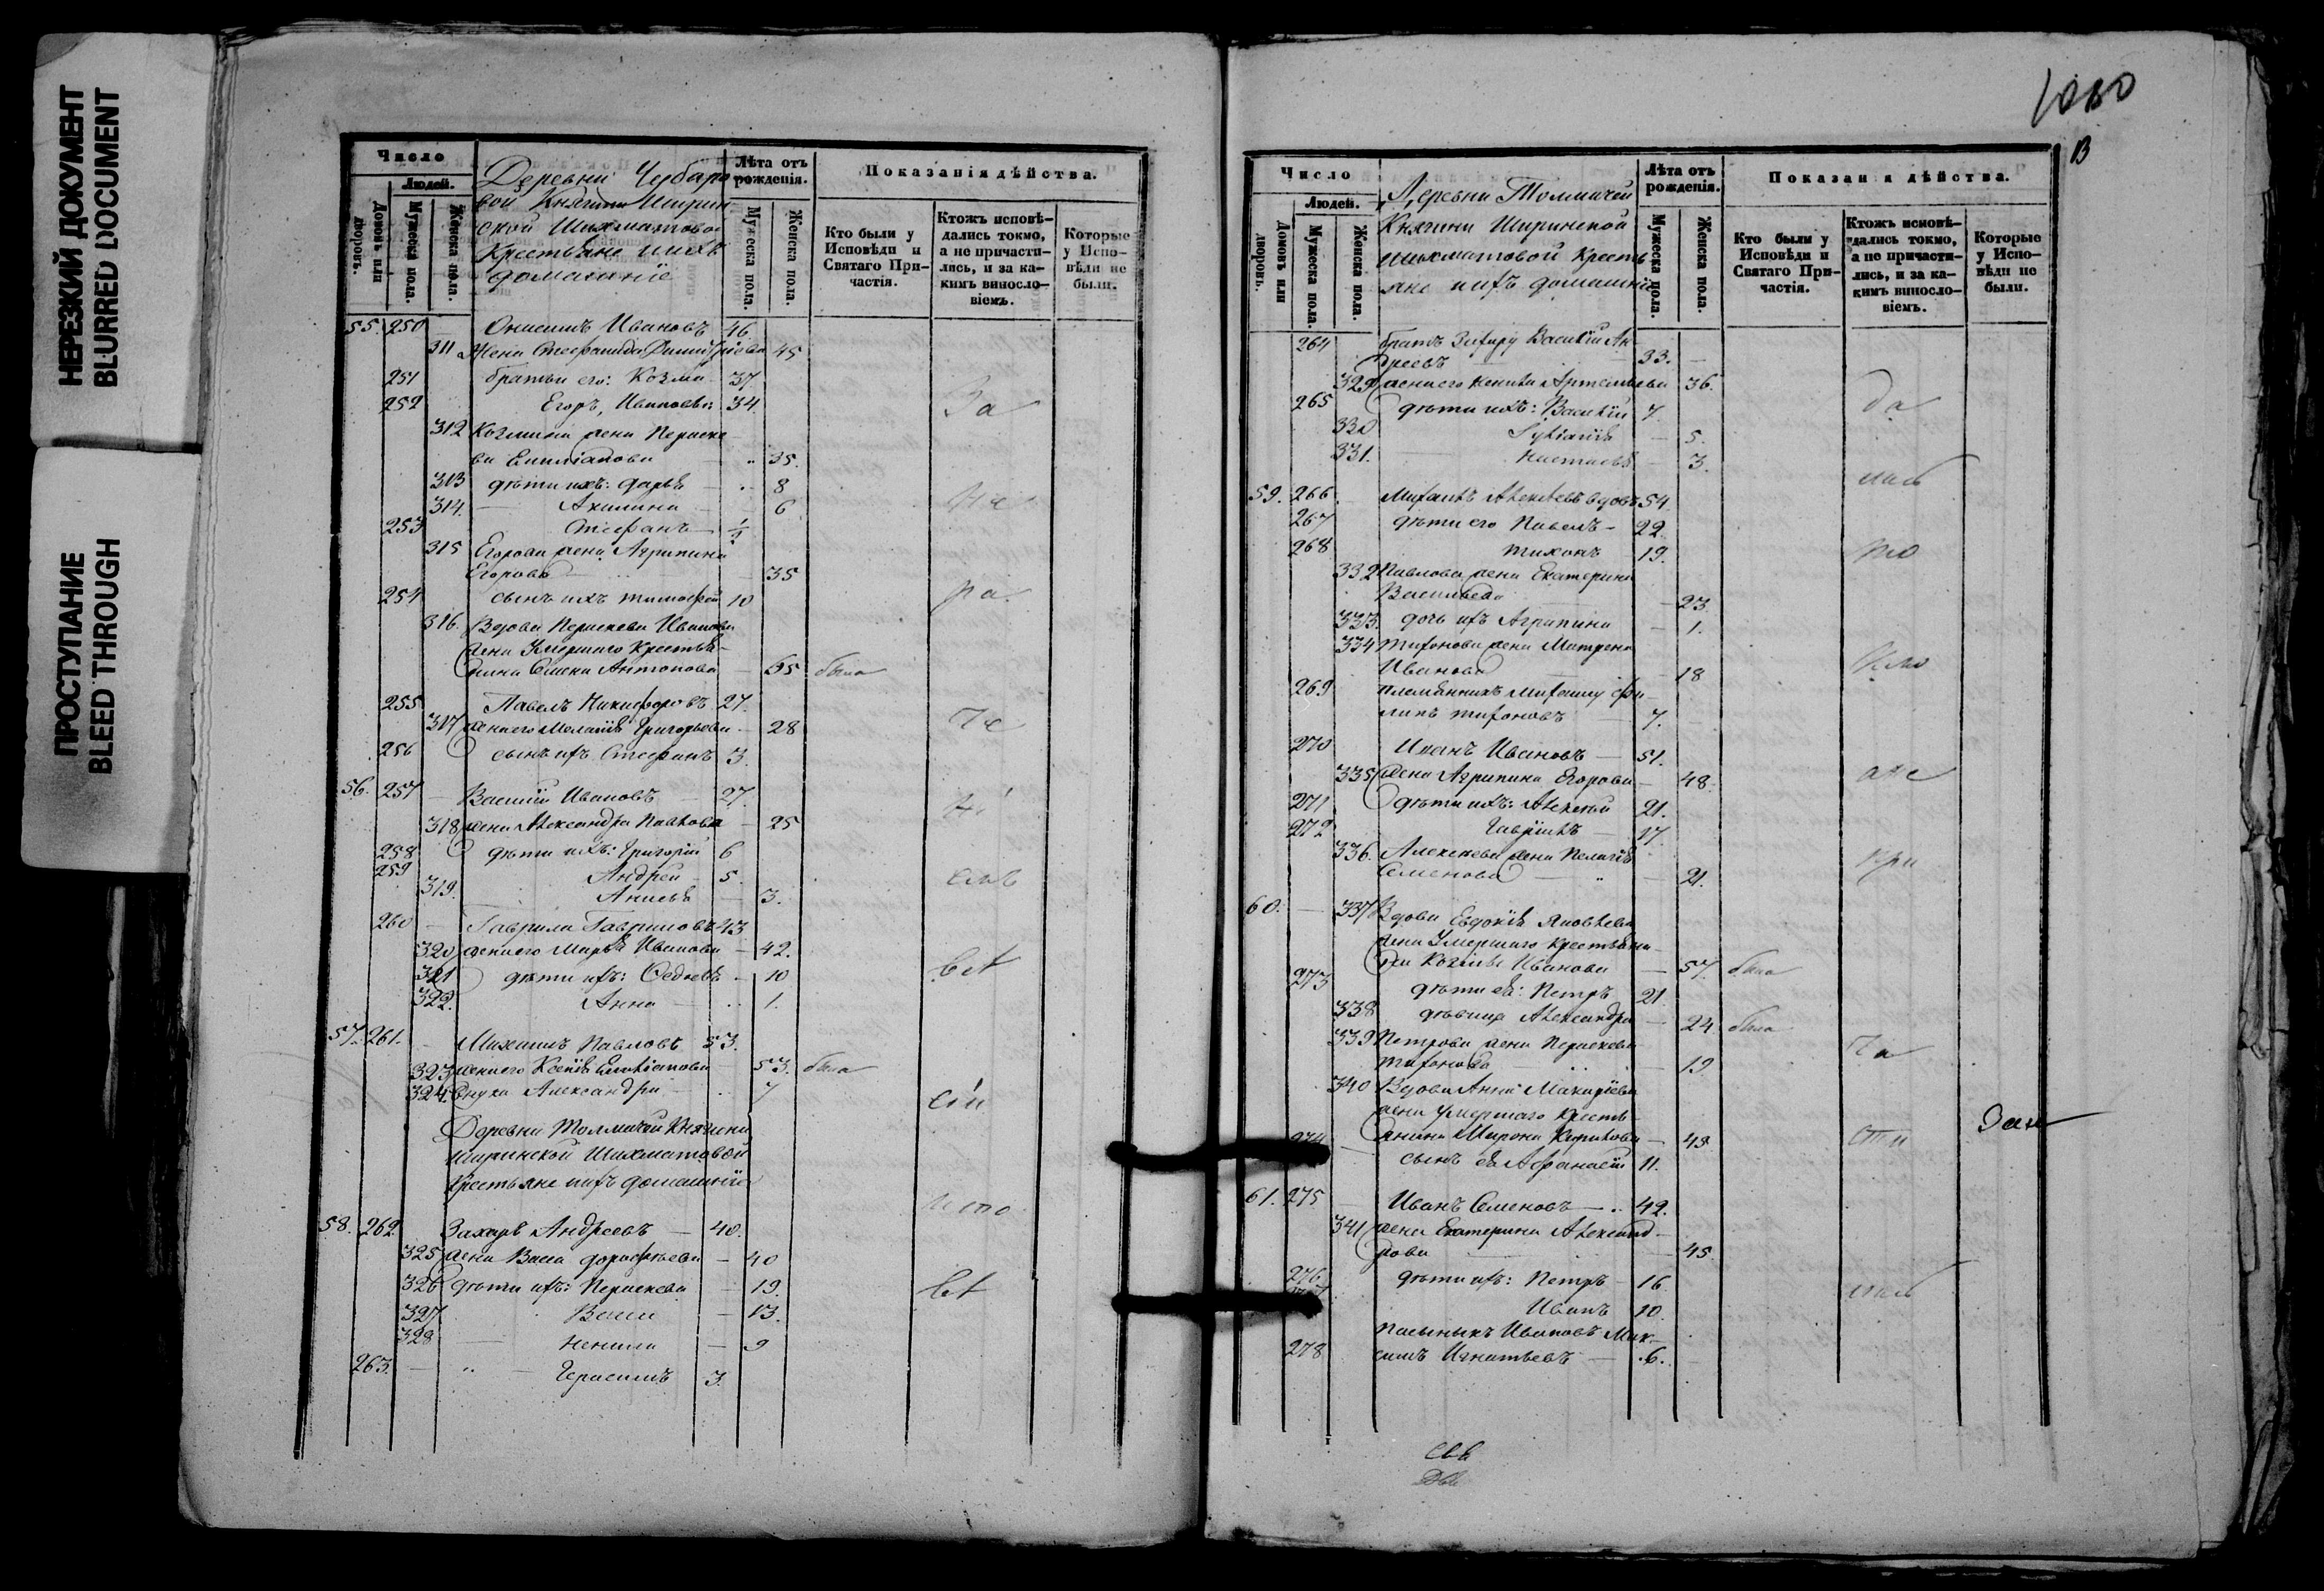 НЕРЕЗКИЙ ДОКУМЕНТ
BLURRED DOCUMENT
ПРОСТУПАНИЕ
BLEED THROUGH
Число
Людей.
Домовъ или дворовъ.
Мужеска пола.
Женска пола.
Деревни Чубаро-
вой Княгини Ширин-
ской Шихматовой
Крестьяне и ихъ
домашніе
Лѣта отъ рожденія.
Мужеска пола.
Женска пола.
Показанія дѣйства.
Кто были у Исповѣди и Святаго При-частія.
Ктожъ исповѣ-дались токмо, а не причасти-лись, и за ка-кимъ виносло-віемъ.
Которые у Испо-вѣди не были.
55. 250 Онисимъ Ивановъ 46
311 Жена Стефанида Димитріева 45
251 братья его: Козма 37
252 Егоръ, Ивановы 34 За
312 Козмина жена Параске-
ва Емиліанова 35.
313 дѣти ихъ: Дарья 8
314. Акилина 6 Не
253 Стефанъ ½
315 Егорова жена Агрипина
Егорова 35
254 сынъ ихъ Тимофей 10 ра
316. Вдова Параскева Иванова
жена Умершаго Крестья-
нина Антонова 65 была
255 Павелъ Никифоровъ 27.
317 жена его Меланія Григорьева 28 Че
256 сынъ ихъ Стефанъ 3.
56. 257 Василій Ивановъ 27.
318 жена Александра Павлова 25 Ні
258 дѣти ихъ: Григорій 6
259 Андрей 5.
319. Анисья 3.
260 Гаврила Гавриловъ 43
320 жена его Марья Иванова 42.
321 дѣти ихъ: 10
322. Анна 1.
57. 261. Михаилъ Павловъ 53.
323 жена его Ксенія Емиліанова 53. была
324. Внука Александра 7 сіи
Деревни Толмачей Княгини
Ширинской Шихматовой
Крестьяне и ихъ домашнія
58. 262. Захаръ Андреевъ 40. испо
325 жена Васса Дорофѣева 40
326 дѣти ихъ: Параскева 19.
327 Васса 13.
328 Ненила 9
263. Герасимъ 3.
1080
13
Число
Людей.
Домовъ или дворовъ.
Мужеска пола.
Женска пола.
Деревни Толмачей
Княгини Ширинской
Шихматовой Кресть
яне и ихъ домашніе
Лѣта отъ рожденія.
Мужеска пола.
Женска пола.
Показанія дѣйства.
Кто были у Исповѣди и Святаго При-частія.
Ктожъ исповѣ-дались токмо, а не причасти-лись, и за ка-кимъ виносло-віемъ.
Которые у Испо-вѣди не были.
264 братъ Захару Василій Ан-
дреевъ 33.
329 жена его Ненила Артемьева 36.
265 дѣти ихъ: Василій 7. да
330 5.
331. Настасья 3.
лись
59. 266 Михаилъ Алексѣевъ вдовъ 54.
267 дѣти его Павелъ 22.
268 Тихонъ 19.
332 Павлова жена Екатерина
Васильева 23
333. дочь ихъ Агрипина 1.
334 Тихонова жена Матрена
Иванова 18
269 племянникъ Михаилу Фи-
липъ Тихоновъ 7.
270 Иванъ Ивановъ 51.
335 Жена Агрипина Егорова 48. а не
271 дѣти ихъ: Алексѣй 21.
272 Гаврилъ 17.
336. Алексѣева жена Пелагія
Семенова 21. при
60. 337 Вдова Евдокія Яковлева
жена Умершаго Крестьяни-
на Козмы Иванова 57. была
273 дѣти ея: Петръ 21
338 дѣвица Александра 24 была
339 Петрова жена Параскева
Тихонова 19 ча
340 Вдова Анна Макаріева
жена умершаго Кресть-
янина Мирона Кирилова 48 сти
274 сынъ ея Афанасій 11.
61. 275 Иванъ Семеновъ 42.
341 жена Екатерина Александ-
рова 45.
276 дѣти ихъ: Петръ 16 лись
Иванъ 10.
278 пасынокъ Ивановъ Мак-
симъ Игнатьевъ 6.